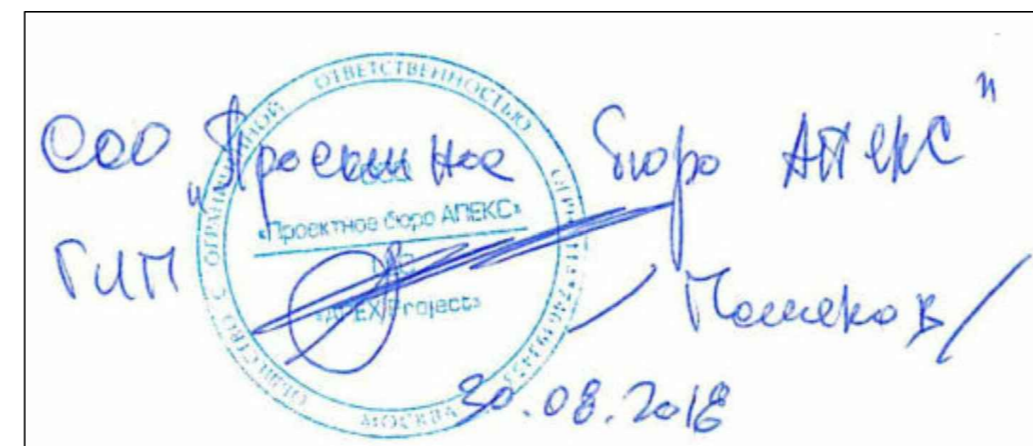 ООО „Проектное бюро АПЕКС"
ГИП
30.08.2018
ОБЩЕСТВО С ОГРАНИЧЕННОЙ ОТВЕТСТВЕННОСТЬЮ
«Проектное бюро АПЕКС»
«APEX Project»
МОСКВА